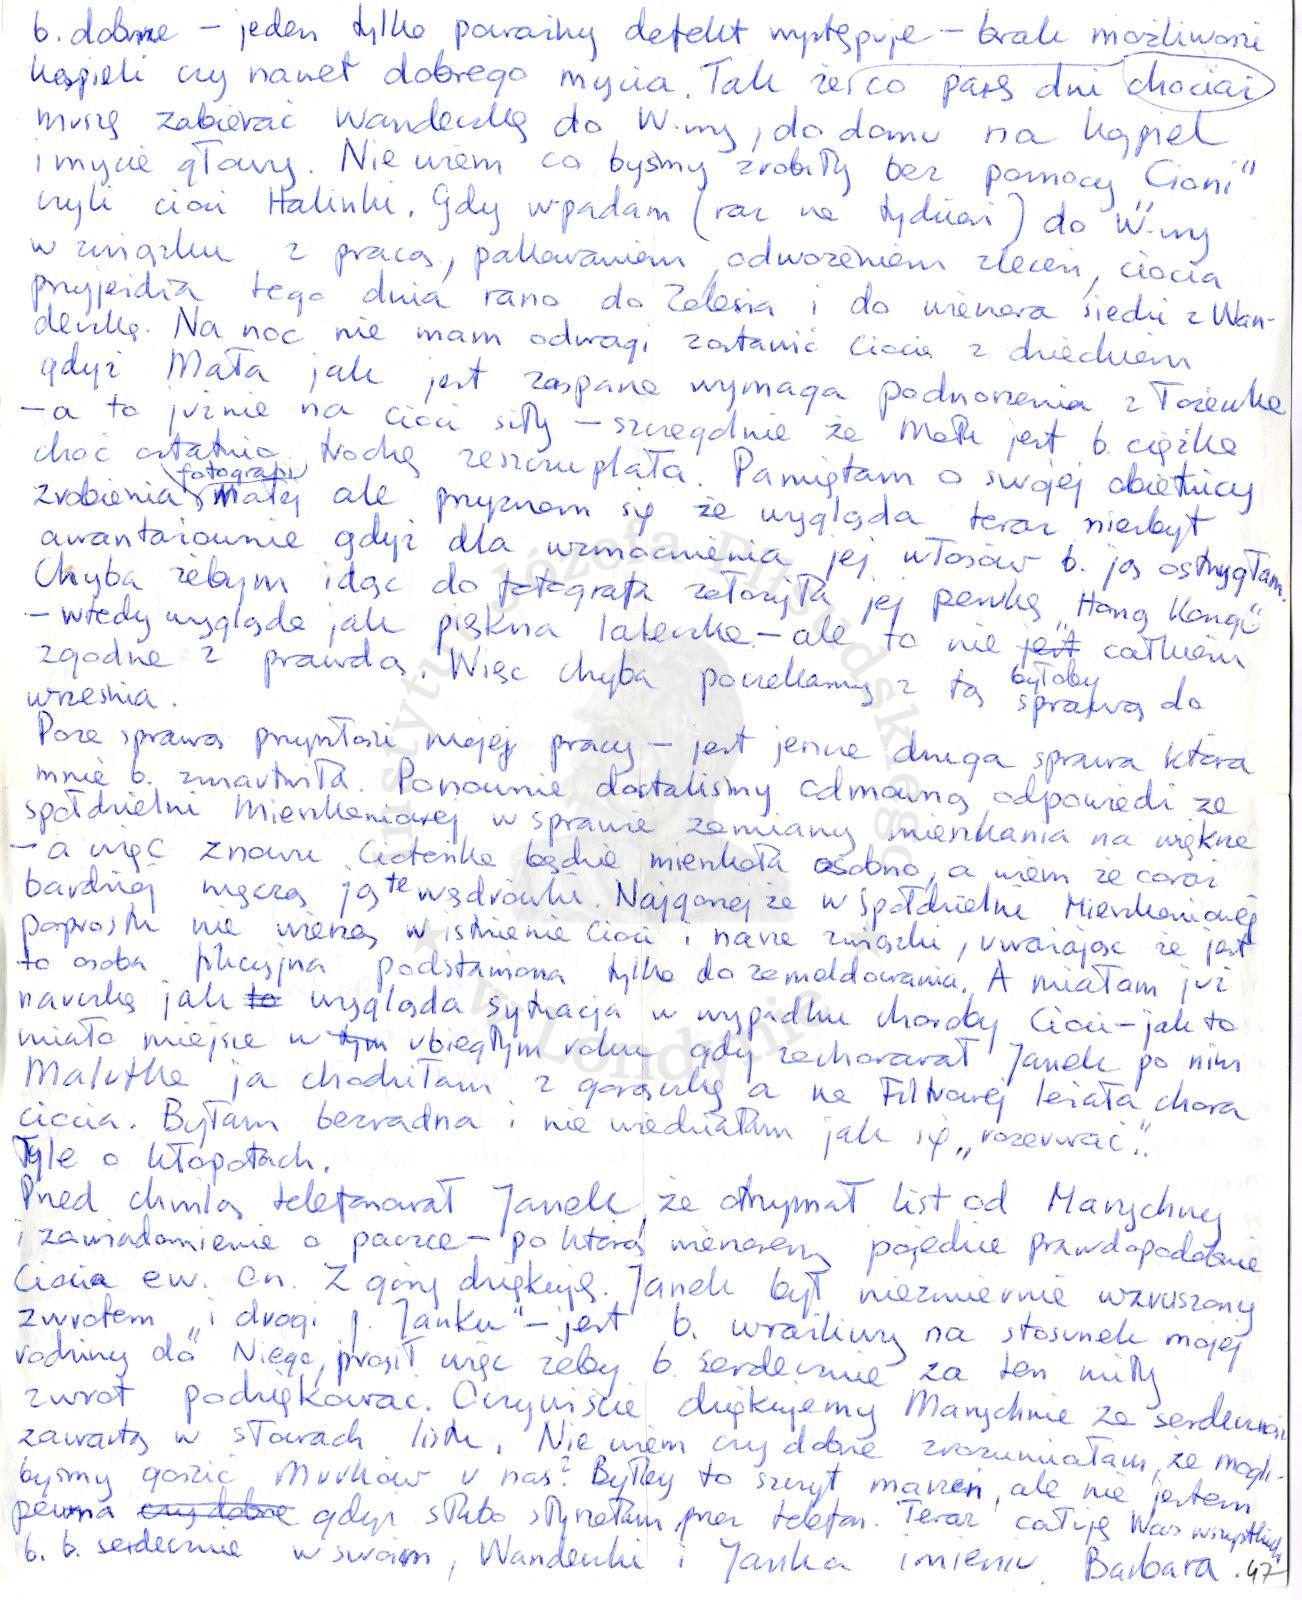 b. dobrze – jeden tylko poważny defekt występuje – brak możliwości
kąpieli czy nawet dobrego mycia. Tak że co parę dni chociaż
muszę zabierać Wandeczkę do W-wy, do domu na kąpiel
i mycie głowy. Nie wiem co byśmy zrobiły bez pomocy "Cioni"
czyli cioci Halinki. Gdy wpadam (raz na tydzień) do W-wy
w związku z pracą, pakowaniem, odwożeniem zleceń, ciocia
przyjeżdża tego dnia rano do Zalesia i do wieczora siedzi z Wan-
deczką. Na noc nie mam odwagi zostawić Ciocię z dzieckiem
gdyż Mała jak jest zaspana wymaga podnoszenia z łóżeczka
– a to już nie na cioci siły – szczególnie że Mała jest b. ciężka
choć ostatnio trochę zeszczuplała. Pamiętam o swojej obietnicy
zrobienia fotografii Małej ale przyznam się że wygląda teraz niezbyt
awantażownie gdyż dla wzmocnienia jej włosów b. ją ostrzygłam.
Chyba żebym idąc do fotografa założyła jej perukę "Hong Kong"
– wtedy wygląda jak piękna laleczka – ale to nie jest byłoby całkiem
zgodne z prawdą. Więc chyba poczekamy z tą sprawą do
września.
Poza sprawą przyszłości mojej pracy – jest jeszcze druga sprawa która
mnie b. zmartwiła. Ponownie dostaliśmy odmowną odpowiedź ze
spółdzielni Mieszkaniowej w sprawie zamiany mieszkania na większe
– a więc znowu Cioteńka będzie mieszkała osobno, a wiem że coraz
bardziej męczą ją te wędrówki. Najgorzej że w Spółdzielni Mieszkaniowej
poprostu nie wierzą w istnienie Cioci i nasze związki, uważając że jest
to osoba fikcyjna podstawiona tylko do zameldowania. A miałam już
nauczkę jak to wygląda sytuacja w wypadku choroby Cioci – jak to
miało miejsce w tym ubiegłym roku gdy zachorował Janek po nim
Malutka ja chodziłam z gorączką a na Filtrowej leżała chora
ciocia. Byłam bezradna i nie wiedziałam jak się "rozerwać".
Tyle o kłopotach.
Przed chwilą telefonował Janek, że otrzymał list od Marychny
i zawiadomienie o paczce – po którą wieczorem pojedzie prawdopodobnie
Ciocia ew. On. Z góry dziękuję. Janek był niezmiernie wzruszony
zwrotem "i drogi p. Janku" – jest b. wrażliwy na stosunek mojej
rodziny do Niego, prosił więc żeby b. serdecznie za ten miły
zwrot podziękować. Oczywiście dziękujemy Marychnie za serdeczność
zawartą w słowach listu. Nie wiem czy dobrze zrozumiałam, że mogli-
byśmy gościć Murków u nas? Byłby to szczyt marzeń, ale nie jestem
pewna czy dobrze gdyż słabo słyszałam przez telefon. Teraz całuję Was wszystkich
b. b. serdecznie w swoim, Wandeczki i Janka imieniu. Barbara. 47
Instytut Józefa Piłsudskiego
w Londynie